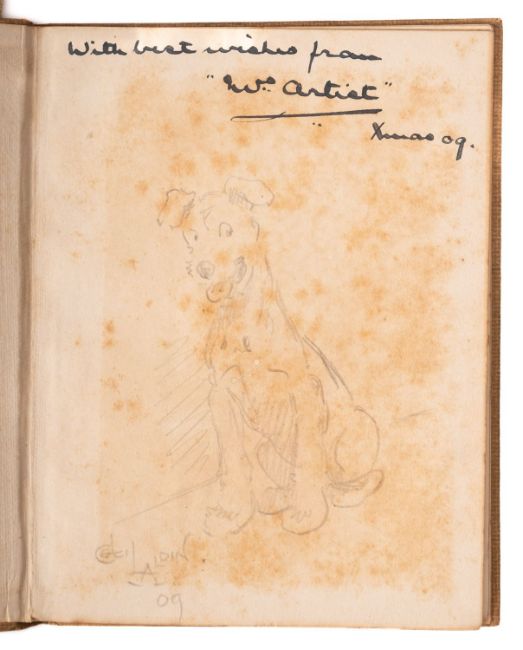 With best wishes from
" Artist"
Xmas 09.
CECIL ALDIN
09